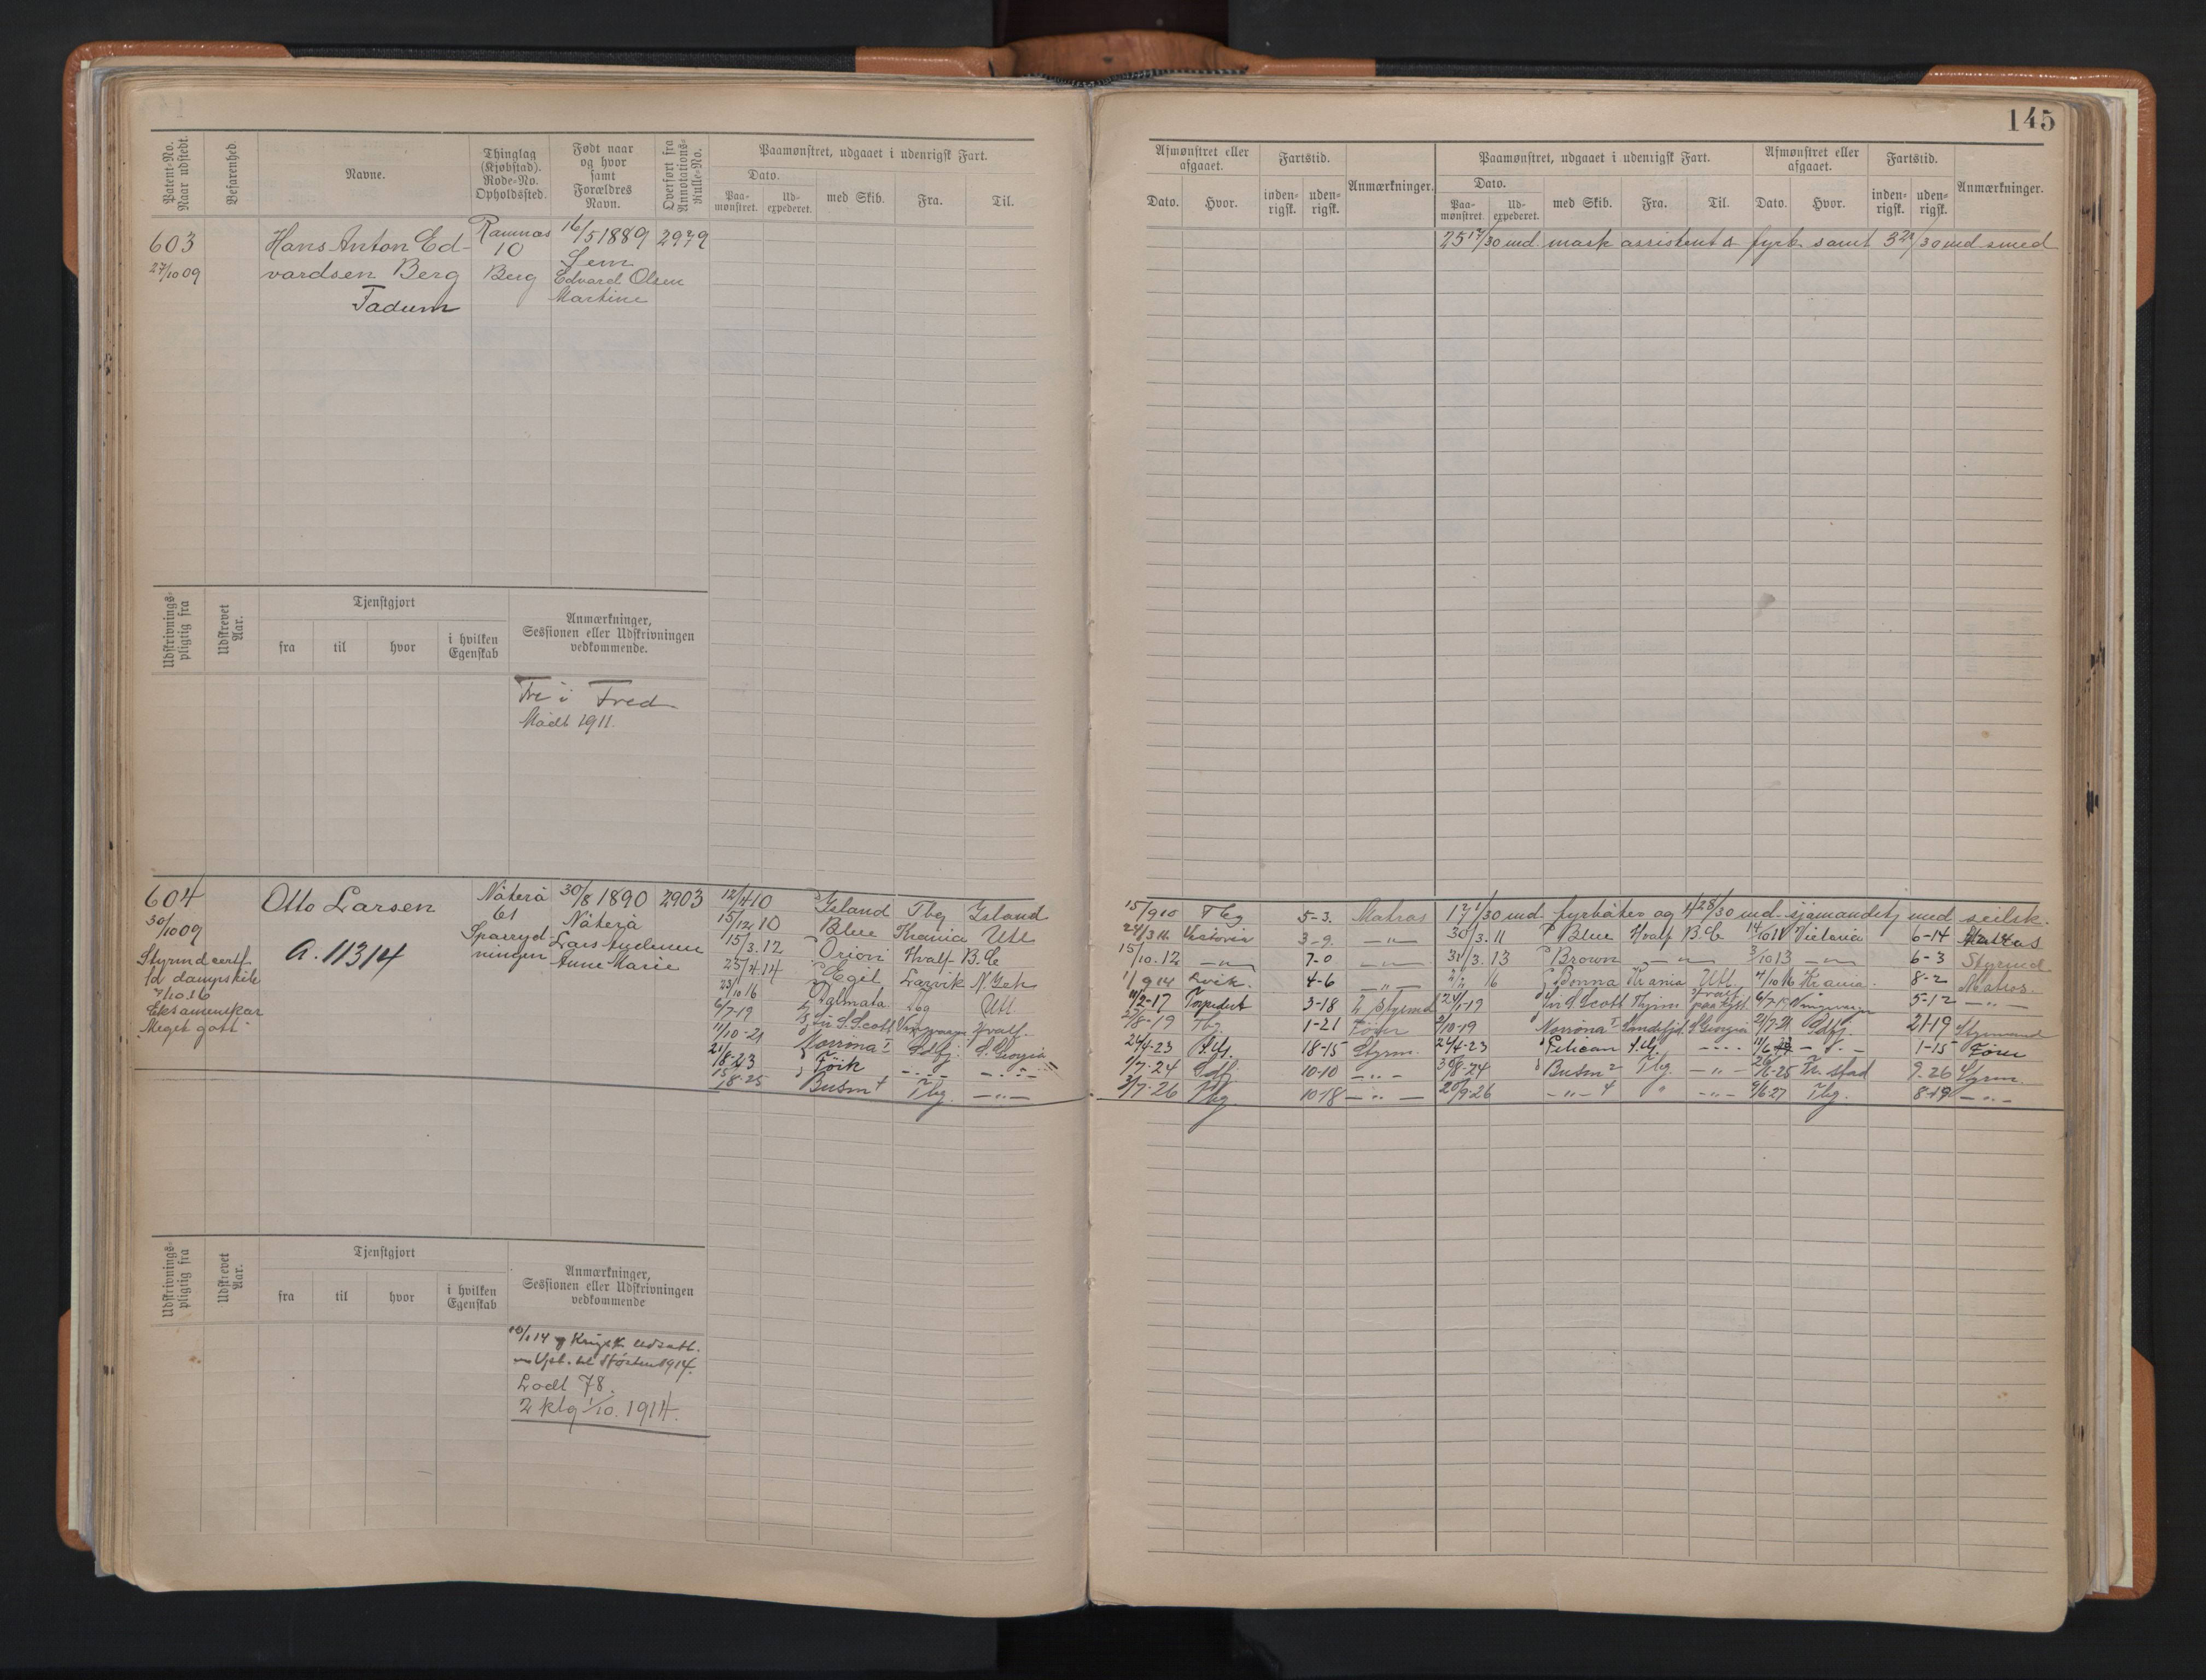 145
Patent-No. Naar udstedt.
Befarenhed.
Navne.
Thinglag (Kjøbstad). Rode-No. Opholdssted.
Født naar og hvor samt Forældres Navn.
Overført fra Annotations-Rulle-No.
Paamønstret, udgaaet i udenrigsk Fart.
Dato.
Paa-mønstret. Ud-expederet. med Skib. Fra. Til.
Afmønstret eller afgaaet. Fartstid. Anmærkninger.
Dato. Hvor. inden-rigsk. uden-rigsk.
Paamønstret, udgaaet i udenrigsk Fart. Afmønstret eller afgaaet. Fartstid. Anmærkninger.
Dato.
Paa-mønstret. Ud-expederet. med Skib. Fra. Til. Dato. Hvor. inden-rigsk. uden-rigsk.
603 Hans Anton Ed- Ramnæs 16/5 1889 2979
27/10 09 vardsen Berg 10 Sem
Berg Edvard Olsen
Fadum Martine
25 17/30 md. mask assistent & fyrb. samt 3 22/30 md smed
Udskrivnings-pligtig fra
Udskrevet Aar.
Tjenstgjort
fra til hvor i hvilken Egenskab
Anmærkninger, Sessionen eller Udskrivningen vedkommende.
Fri i Fred
Mødt 1911.
604 Otto Larsen Nøterø 30/8 1890 2903
30/10 09 61 Nøterø
A. 11314
Styrmd certf.
fd dampskib
7/10 16
Eksamenskar
Meget godt
Anne Marie
12/4 10 Island Tbg Island
15/12 10 Blue Krania Utl
15/3.12 Orion Hvalf B.C
25/4 14 Egil Larvik
23/10 16 Dalmata Tbg Utl
6/7-19
11/10-21 Norrona I Sdfj. S. Georgia
21/8-23 Föik
15/8-25 Busm 4 Tbg. -"-
15/9 10 Tbg 5-3. Matros
24/3 11 Victoria 3-9. -"-
15/10.12 -"- 7-0 -"-
1/9 14 Lvik. 4-6 -"-
11/2-17 3-18 2 Styrmd
27/8-19 Tbg. 1-21
24/4-23 S.G. 18-15 Styrm.
1/7-24 Sdfj. 10-10 -"-
3/7-26 Tbg 10-18 -"-
17 21/30 md. fyrbøter og 4 28/30 md. sjømandstj med seilsk.
30/3.11 Blue Hvalf B.C 14/10 11 Victoria 6-14 Matros
31/3.13 Brown -"- 3/10 13 -"- 6-3 Styrmd
16 Bonna Krania Utl. 7/10 16 Krania. 8-2 Matros.
5-12 -"-
2/10-19 Norröna I Sandefjd. S. Georgia 21/7-21 Sdfj. 21-19 Styrmand
24/4-23 Pelican S.G. 1-15
30/8-24 Busm 2 Tbg. -"- 9-26 Styrm.
20/9-26 -"- 4 " -"- 9/6-27 Tbg. 8-19 -"-
Udskrivnings-pligtig fra
Udskrevet Aar.
Tjenstgjort
fra til hvor i hvilken Egenskab
Anmærkninger, Sessionen eller Udskrivningen vedkommende
Lodt 78.
2 klg 1/10. 1914.